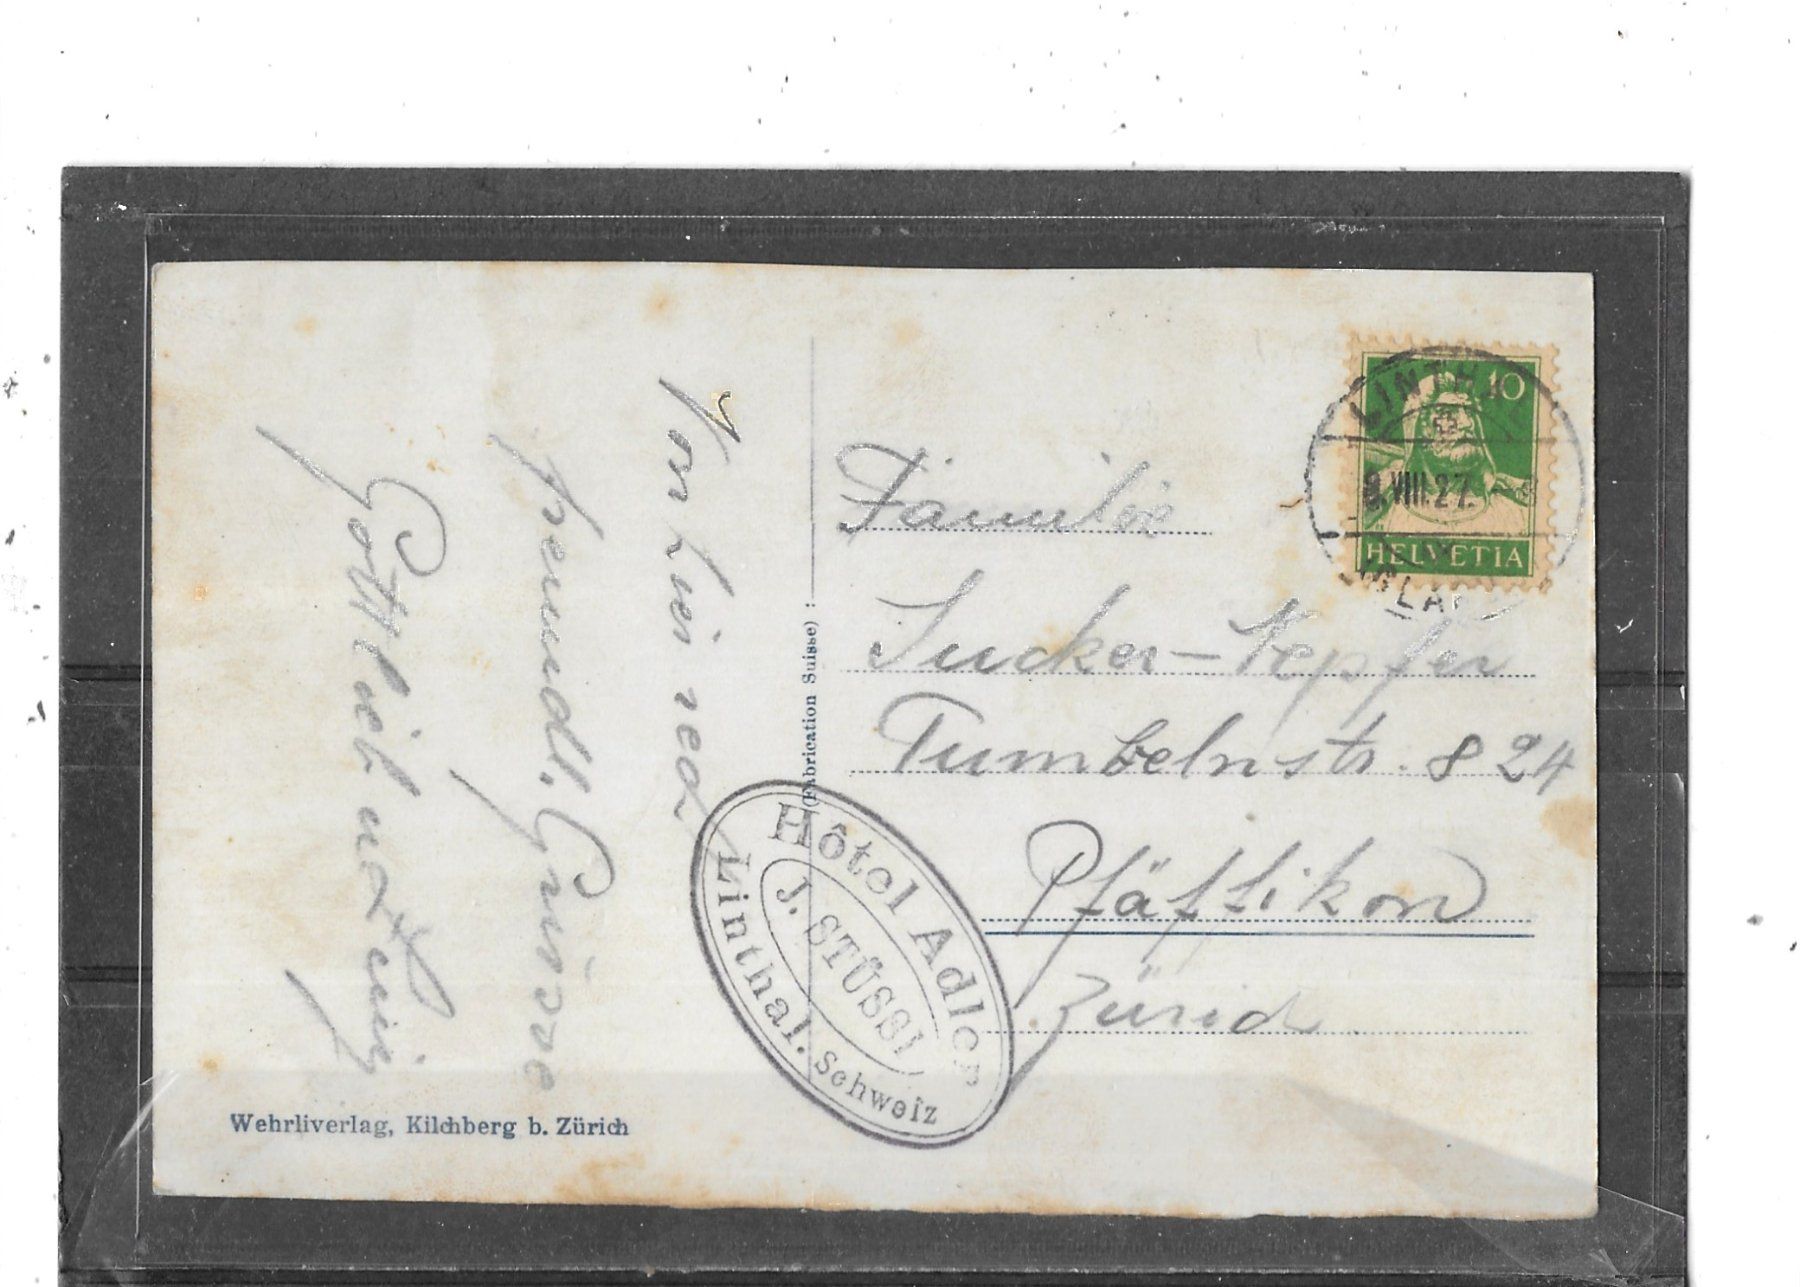 Von hier
freundl. Grüsse
Gottlieb und
(Fabrication Suisse) :
Wehrliverlag, Kilchberg b. Zürich
Hôtel Adler
J. STÜSSI
Linthal. Schweiz
10
HELVETIA
LINTH
8.VIII.27.
GLA
Familie
Sucker-Kepfer
Tumbelnstr. 824
Pfäffikon
Zürich